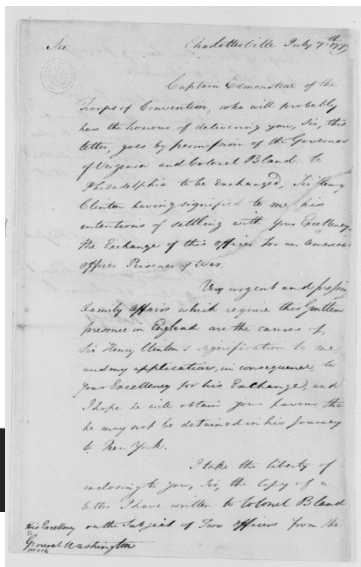 Sir
Charlottesville July 7th 1779
Captain Edmonstone of the
Troops of Convention, who will probably
has the honour of delivering you, Sir, this
letter, goes by permission of the Governor
of Virginia and Colonel Bland to
Philadelphia to be Exchanged, Sir Henry
Clinton having signified to me his
intentions of settling with your Excellency,
the Exchange of this officer for an
officer Prisoner of War.
Very urgent and pressing
Family affairs which require this Gentlem
presence in England are the causes of
Sir Henry Clinton's signification to me,
and my application, in consequence, to
your Excellency for his Exchange, and
I hope he will obtain your favour tha
he may not be detained in his Journey
to New York.
I take the liberty of
inclosing to you, Sir, the Copy of a
letter I have written to Colonel Bland
on the Subject of Two officers from the
His Excellency
General Washington